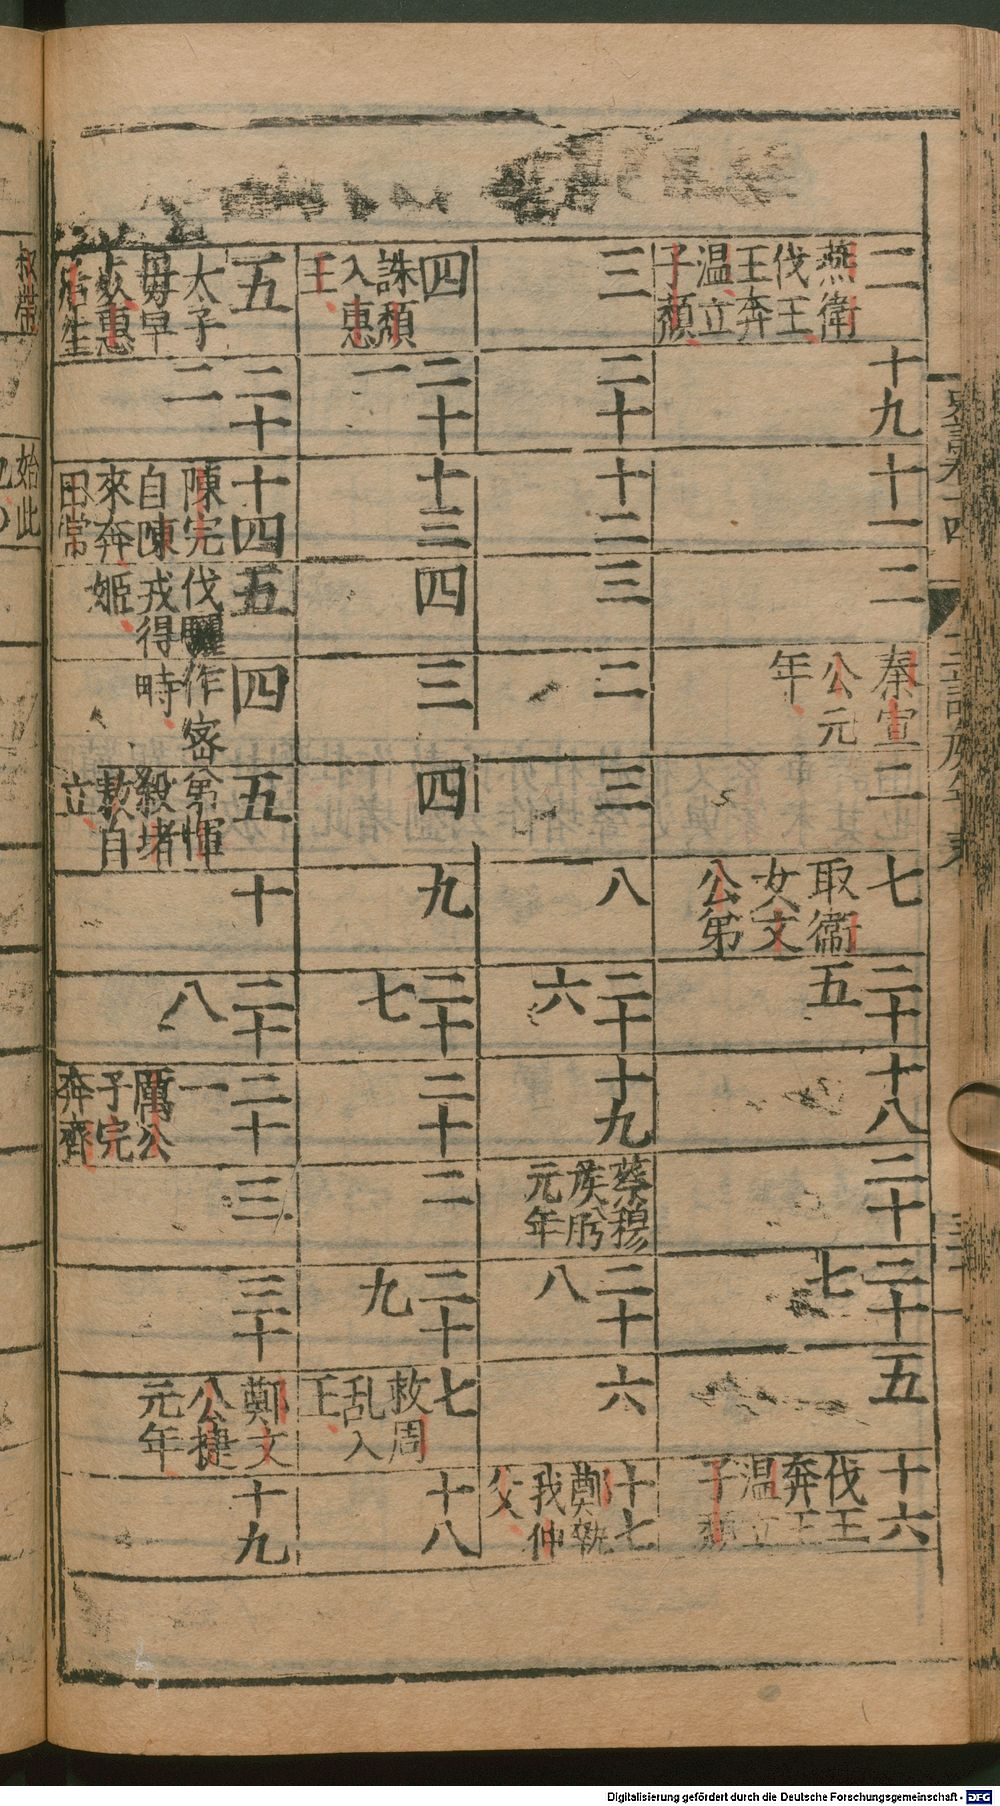 二
燕衛
伐王
王奔
温立
子頽
十九
十一
二
秦宣
公元
年
二
七
取衞
女文
公弟
二十
五
十八
二十
二十
七
五
十六
伐王
王奔
温立
子頽
三
二十
十二
三
二
三
八
二十
六
十九
蔡穆
侯肹
元年
二十
八
六
十七
鄭執
我仲
父
四
誅頽
入惠
王
二十
一
十三
四
三
四
九
二十
七
二十
二
二十
九
七
救周
乱入
王
十八
五
太子
母早
死惠
后生
二十
二
十四
陳完
自陳
來奔
田常
五
伐
戎得
姬
四
五
弟惲
殺堵
敖自
立
十
二十
八
二十
一
厲公
子完
奔齊
三
三十
鄭文
公捷
元年
十九
叔帶
始此
Digitalisierung gefördert durch die Deutsche Forschungsgemeinschaft - DFG